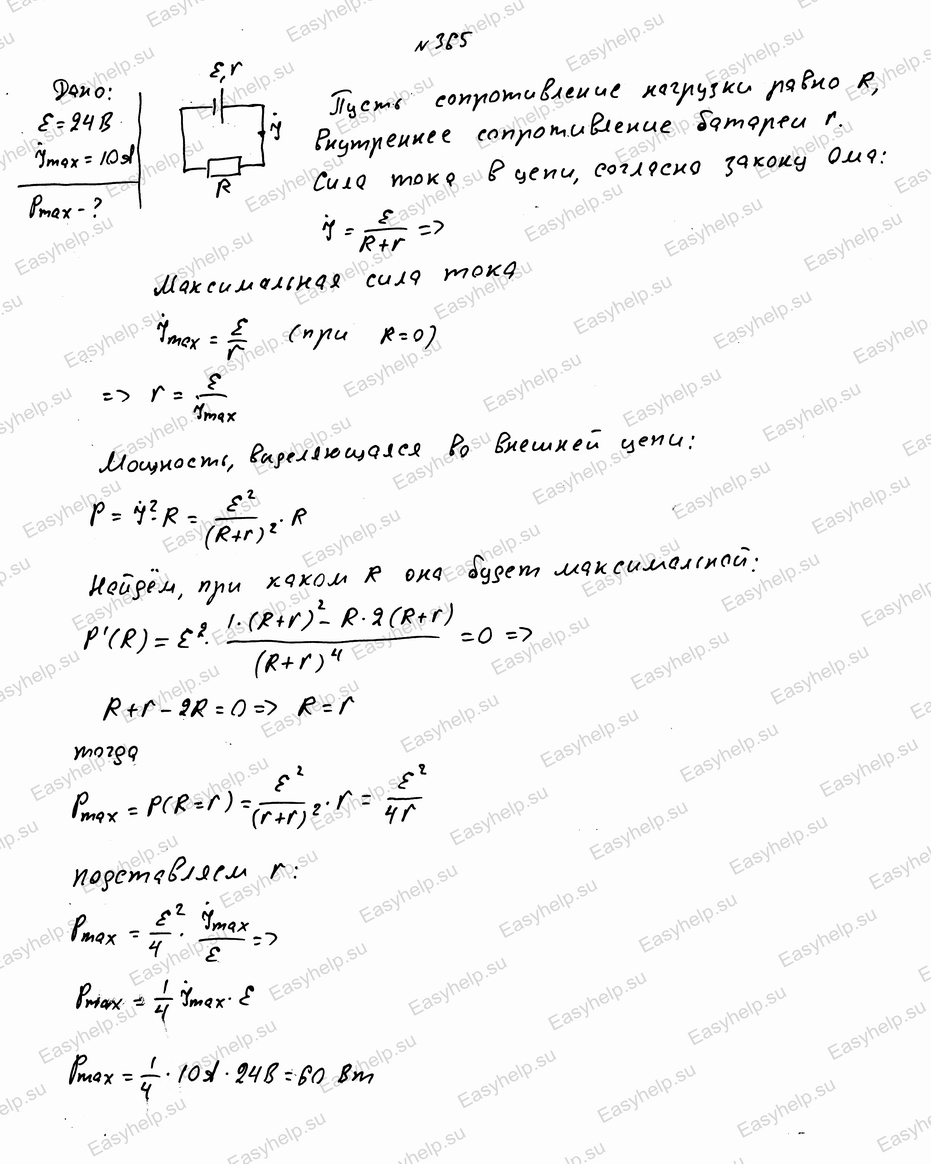 N 365
Дано:
ε = 24 В
Jmax = 10 А
Pmax - ?
ε, r
J
R
Пусть сопротивление нагрузки равно R,
внутреннее сопротивление батареи r.
Сила тока в цепи, согласно закону Ома:
J = ε/(R+r) =>
Максимальная сила тока
Jmax = ε/r (при R=0)
=> r = ε/Jmax
Мощность, выделяющаяся во внешней цепи:
P = J²·R = ε²/(R+r)² · R
Найдём, при каком R она будет максимальной:
P'(R) = ε² · (1·(R+r)² − R·2(R+r))/(R+r)⁴ = 0 =>
R+r − 2R = 0 => R = r
тогда
Pmax = P(R=r) = ε²/(r+r)² · r = ε²/4r
подставляем r:
Pmax = ε²/4 · Jmax/ε =>
Pmax = 1/4 Jmax · ε
Pmax = 1/4 · 10А · 24В = 60 Вт
Easyhelp.su